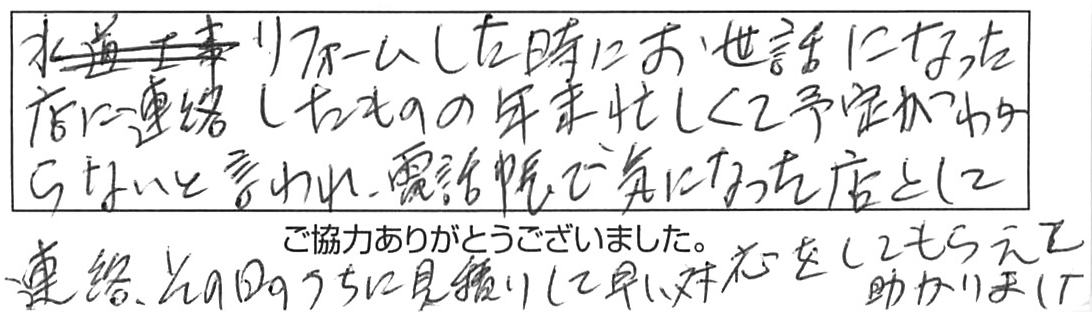 水道工事リフォームした時にお世話になった
店に連絡したものの年末忙しくて予定がわか
らないと言われ、電話帳で気になった店として
ご協力ありがとうございました。
連絡、その日のうちに見積りして早い対応をしてもらえて
助かりました